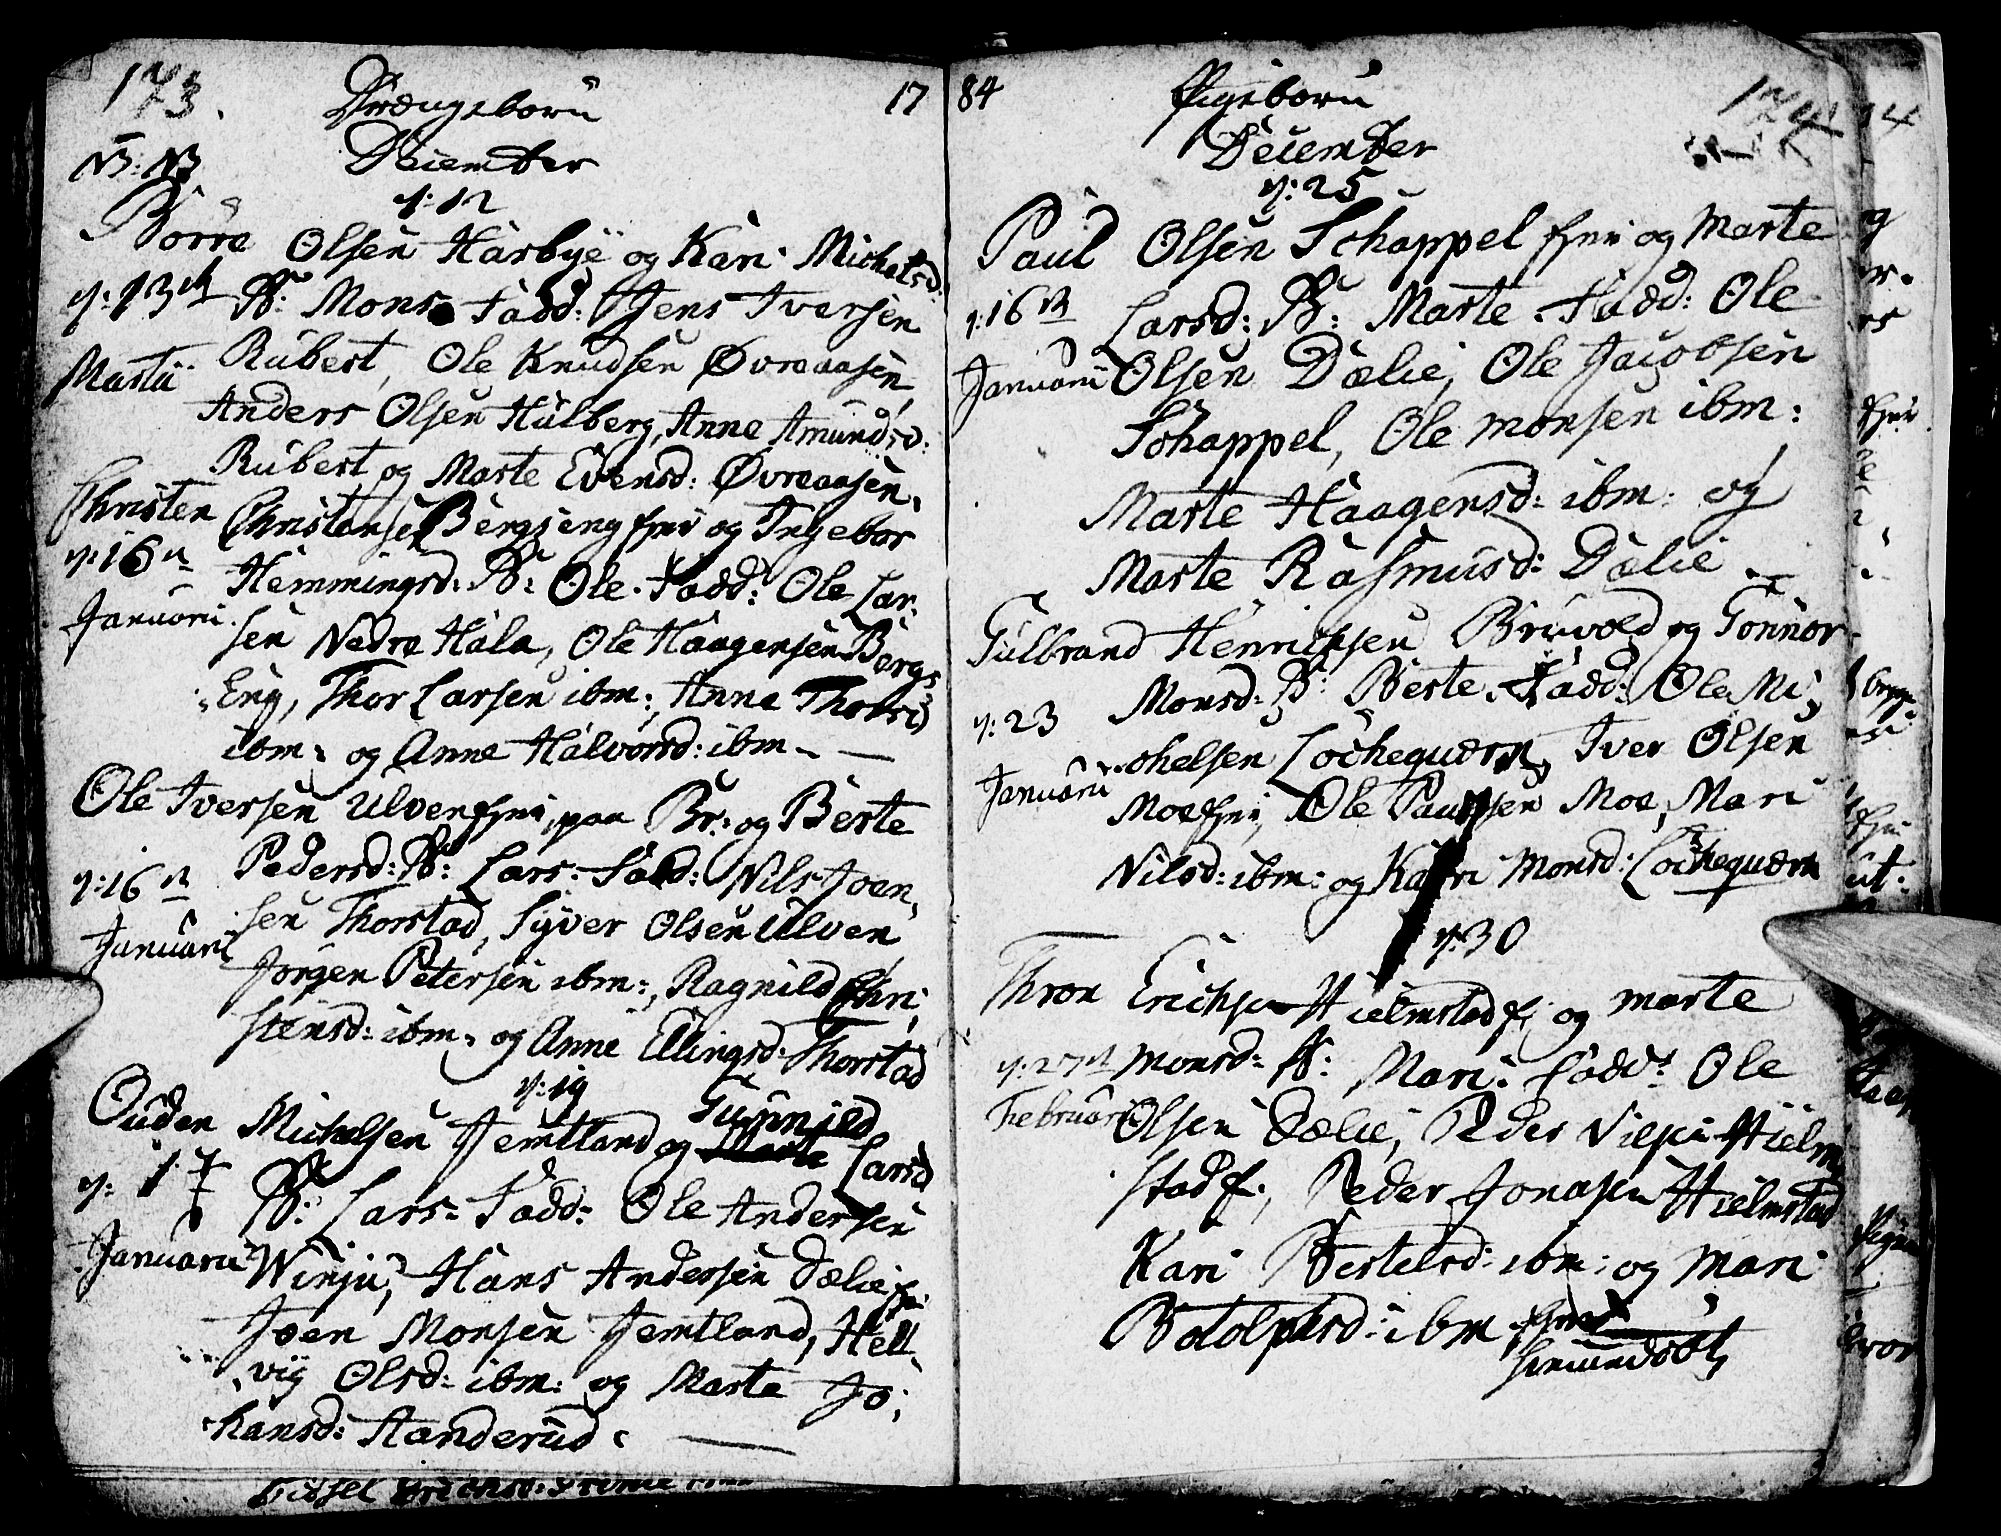 173.
Drængebørn
17
NB: NB
December
d: 12
Børre Olsen Harbye og Kari Michelsd:
d: 13 d B: Mons. Fadd: Jens Iversen
Martii Rubest, Ole Knudsen Øvreaasen,
Anders Olsen Hulberg, Anne Amundsd:
Rubest og Marte Evensd: Øvreaasen.
Christen Christensen Bergseng fjer og Ingebor
d: 16 Hemmingsd: B: Ole. Fadd: Ole Lar-
Januarii sen Nedre Hala, Ole Haagensen Bergs
Eng, Thor Larsen ibm:, Anne Thorsd
ibm: og Anne Halvorsd: ibm
Ole Iversen Ulven fjer, paa Br: og Berte
d: 16 Pedersd: B: Lars: Fadd: Nils Joen-
sen Thorstad, Syver Olsen Ulven
Januarii Jørgen Petersen ibm:, Ragnild Chri-
stensd: ibm: og Anne Ellingsd: Thorstad
d: 19
Gunnild
Ouden Michelsen Jemtland og Marte Larsd
d: 17 B: Lars: Fadd: Ole Andersen
Januarii Winju, Hans Andersen Dælie fjer
Joen Monsen Jemtland, Hell-
vig Olsd: ibm: og Marte Jo-
hansd: Standerud.
84
Pigebørn
174
December
d: 25
Paul Olsen Schappel fjer og Marte
d: 16 Larsd: B: Marte. Fadd: Ole
Januarii Olsen Dælie, Ole Jacobsen
Schappel, Ole Monsen ibm:
Marte Haagensd: ibm: og
Marte Rasmusd: Dælie
Gulbrand Henrichsen Bruvold og Gonnor
Monsd: B: Berte. Fadd: Ole Mi-
d: 23 chelsen Løchequærn, Iver Olsen
Januarii Moe fjer, Ole Paulsen Moe, Mari
Nilsd: ibm: og Kari Monsd: Løchequærn
d: 30
Thron Erichsen Hielmstad fj og Marte
d: 27 Monsd: B: Mari: Fadd: Ole
Februarii Olsen Dælie, Peder Nilsen Hielm
stad f:, Peder Jonasen Hielmstad
Kari Bertelsd: ibm: og Mari
Botolphsd: ibm